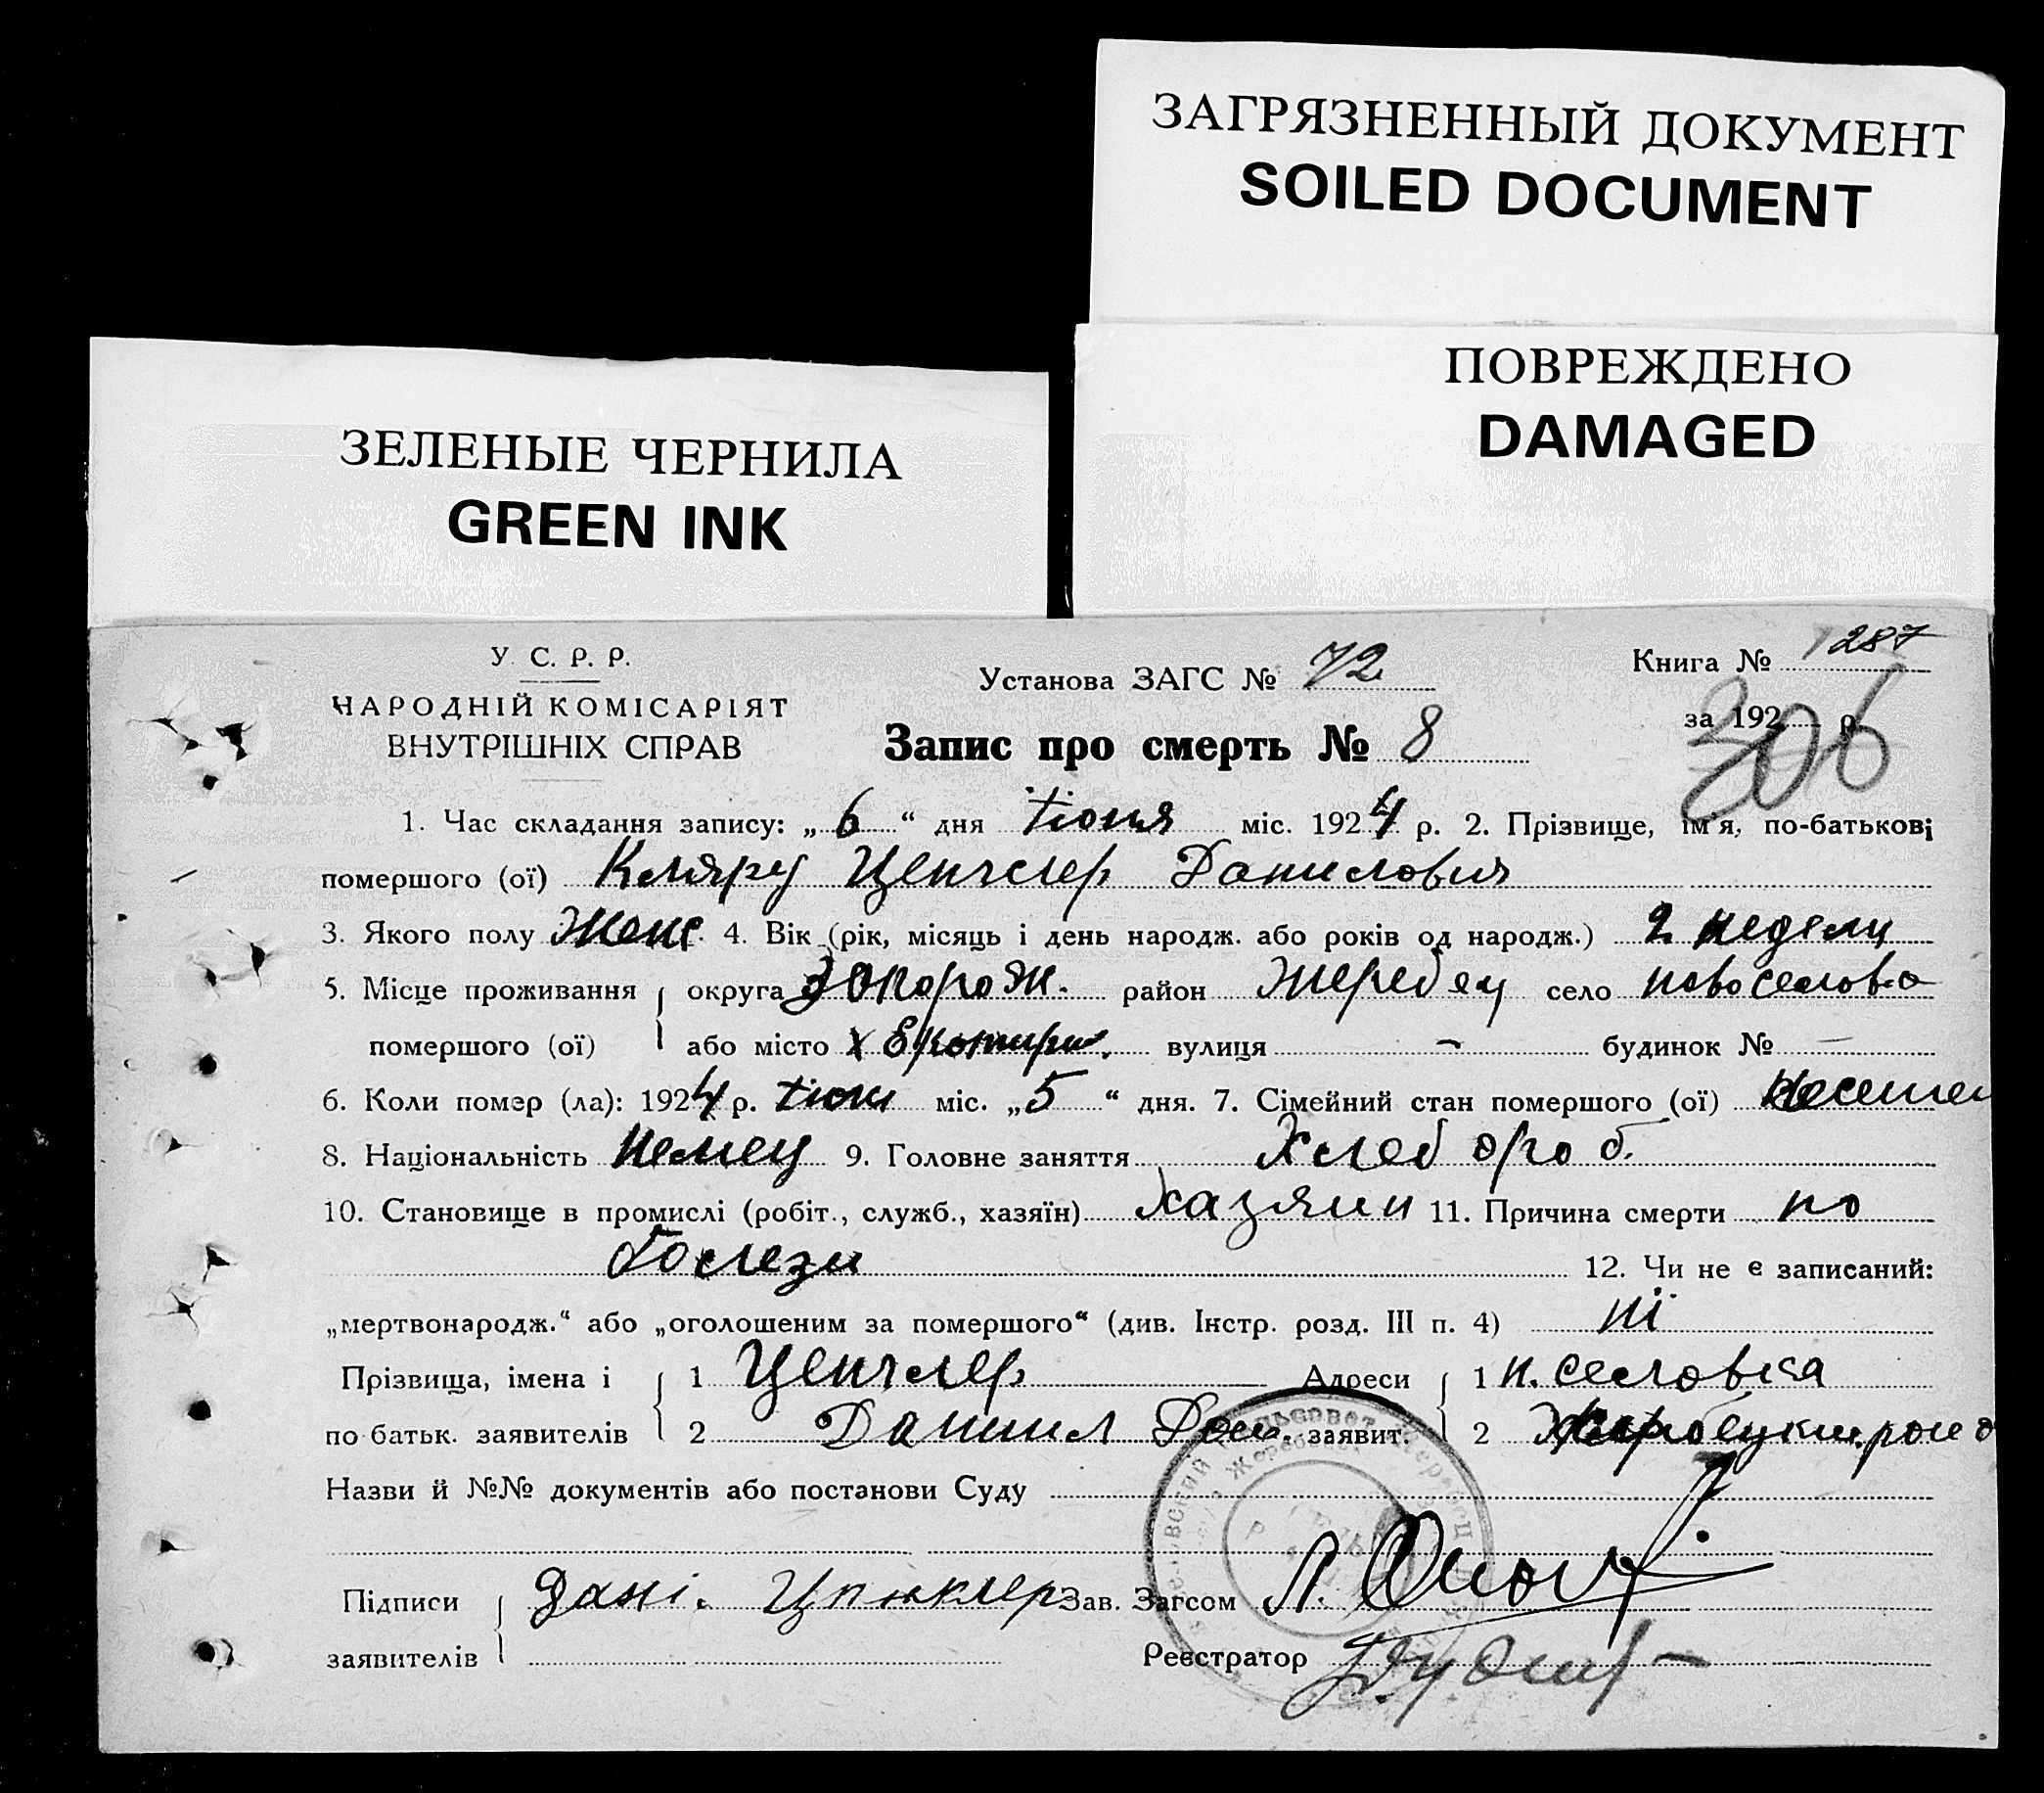 ЗАГРЯЗНЕННЫЙ ДОКУМЕНТ
SOILED DOCUMENT
ПОВРЕЖДЕНО
DAMAGED
ЗЕЛЕНЫЕ ЧЕРНИЛА
GREEN INK
У. С. Р. Р.
НАРОДНІЙ КОМІСАРІЯТ
ВНУТРІШНІХ СПРАВ
Установа ЗАГС № 72
Книга № 287
за 192 р.
306
Запис про смерть № 8
1. Час складання запису: „6“ дня Іюня міс. 1924 р. 2. Прізвище, ім'я, по-батькові
помершого (ої) Кляру Ценглер Данилович
3. Якого полу Женс. 4. Вік (рік, місяць і день народж. або років од народж.) 2 недели
5. Місце проживання округа Запорож. район Жеребец село новоселовка
помершого (ої) або місто вулиця — будинок № —
6. Коли помер (ла): 1924 р. Іюн міс. „5“ дня. 7. Сімейний стан помершого (ої)
8. Національність Немец 9. Головне заняття Хлебороб.
10. Становище в промислі (робіт., служб., хазяїн) Хазяин 11. Причина смерти по
болези 12. Чи не є записаний:
„мертвонародж.“ або „оголошеним за помершого“ (див. Інстр. розд. III п. 4) ні
Прізвища, імена і 1 Ценглер Адреси 1 н. селовка
по батьк. заявителів 2 Даниил заявит. 2
Назви й №№ документів або постанови Суду
Підписи Дані. Цпнклер Зав. Загсом
заявителів Реєстратор